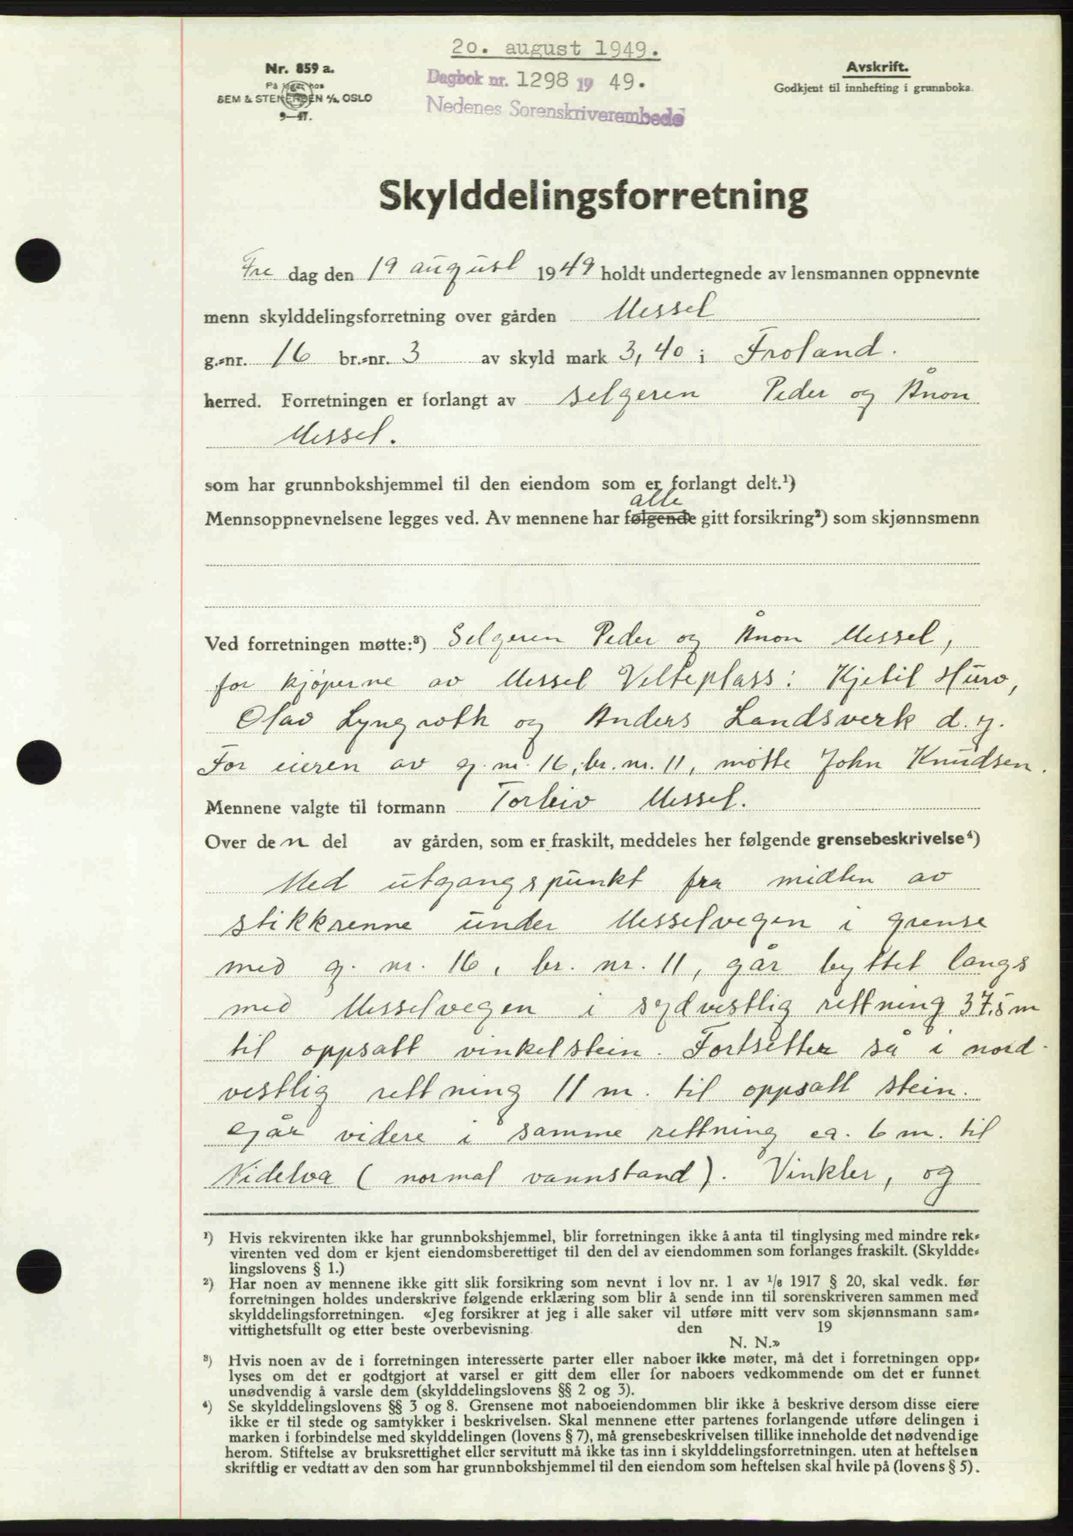 20. august 1949.
Nr. 859 a.
På lager hos
SEM & STENERSEN A/S, OSLO
9—47.
Dagbok nr. 1298 19 49.
Nedenes Sorenskriverembede
Avskrift.
Godkjent til innhefting i grunnboka.
Skylddelingsforretning
Fre dag den 19 august 1949 holdt undertegnede av lensmannen oppnevnte
menn skylddelingsforretning over gården Messel
g.-nr. 16 br.-nr. 3 av skyld mark 3,40 i Froland.
herred. Forretningen er forlangt av selgeren Peder og Ånon
Messel.
som har grunnbokshjemmel til den eiendom som er forlangt delt.¹)
alle
Mennsoppnevnelsene legges ved. Av mennene har følgende gitt forsikring²) som skjønnsmenn
Ved forretningen møtte:³) Selgeren Peder og Ånon Messel,
for kjöperne av Messel Velteplass: Kjetil Huro,
Olav Lyngroth og Anders Landsverk d. y.
For eieren av g. nr. 16, br. nr. 11, møtte John Knudsen.
Mennene valgte til formann Torleiv Messel.
Over den del av gården, som er fraskilt, meddeles her følgende grensebeskrivelse⁴)
Med utgangspunkt fra midten av
stikkrenne under Messelvegen i grense
med g. nr. 16, br. nr. 11, går byttet langs
med Messelvegen i sydvestlig rettning 37,5 m
til oppsatt vinkelstein. Fortsetter så i nord-
vestlig rettning 11 m. til oppsatt stein.
Går videre i samme rettning ca. 6 m. til
Nidelva (normal vannstand). Vinkler, og
¹) Hvis rekvirenten ikke har grunnbokshjemmel, blir forretningen ikke å anta til tinglysing med mindre rek-
virenten ved dom er kjent eiendomsberettiget til den del av eiendommen som forlanges fraskilt. (Skyldde-
lingslovens § 1.)
²) Har noen av mennene ikke gitt slik forsikring som nevnt i lov nr. 1 av 1/6 1917 § 20, skal vedk. før
forretningen holdes underskrive følgende erklæring som blir å sende inn til sorenskriveren sammen med
skylddelingsforretningen. «Jeg forsikrer at jeg i alle saker vil utføre mitt verv som skjønnsmann sam-
vittighetsfullt og etter beste overbevisning. den 19
N. N.»
³) Hvis noen av de i forretningen interesserte parter eller naboer ikke møter, må det i forretningen opp-
lyses om det er godtgjort at varsel er gitt dem eller for naboers vedkommende om det er funnet
unødvendig å varsle dem (skylddelingslovens §§ 2 og 3).
⁴) Se skylddelingslovens §§ 3 og 8. Grensene mot naboeiendommen blir ikke å beskrive dersom disse eiere
ikke er til stede og samtykker i beskrivelsen. Skal mennene etter partenes forlangende utføre delingen i
marken i forbindelse med skylddelingen (lovens § 7), må grensebeskrivelsen tillike inneholde det nødvendige
herom. Stiftelse av bruksrettighet eller servitutt må ikke tas inn i skylddelingsforretningen. uten at heftelsen
skriftlig er vedtatt av den som har grunnbokshjemmel til den eiendom som heftelsen skal hvile på (lovens § 5).